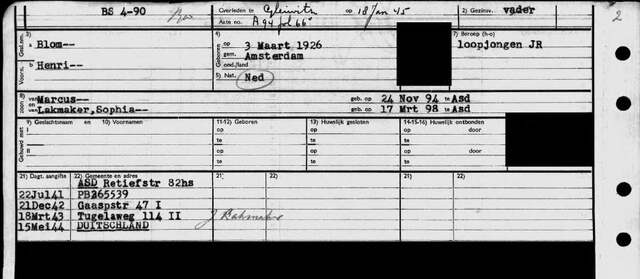 BS 4-90 Overleden te Gleiwitz op 18 Jan 45 2) Gezinsv. vader
Acte no. A 94 fol 66
2
Gesl.nm. 3) Blom-- 4) Geboren op 3 Maart 1926 7) Beroep (h-o) loopjongen JR
gem. Amsterdam
Voorn. b Henri-- prov./land
5) Nat. Ned
8) zoon van Marcus-- geb. op 24 Nov 94 te Asd
en van Lakmaker, Sophia-- geb. op 17 Mrt 98 te Asd
9) Geslachtsnaam en 10) Voornamen 11-12) Geboren 13) Huwelijk gesloten 14-15-16) Huwelijk ontbonden
Gehuwd met: I op op op door
te te te
II op op op door
te te te
21) Dagt. aangifte 22) Gemeente en adres 21) 22) 21) 22)
ASD Retiefstr 82hs
22Jul41 PB265539
21Dec42 Gaaspstr 47 I
18Mrt43 Tugelaweg 114 II
15Mei44 DUITSCHLAND